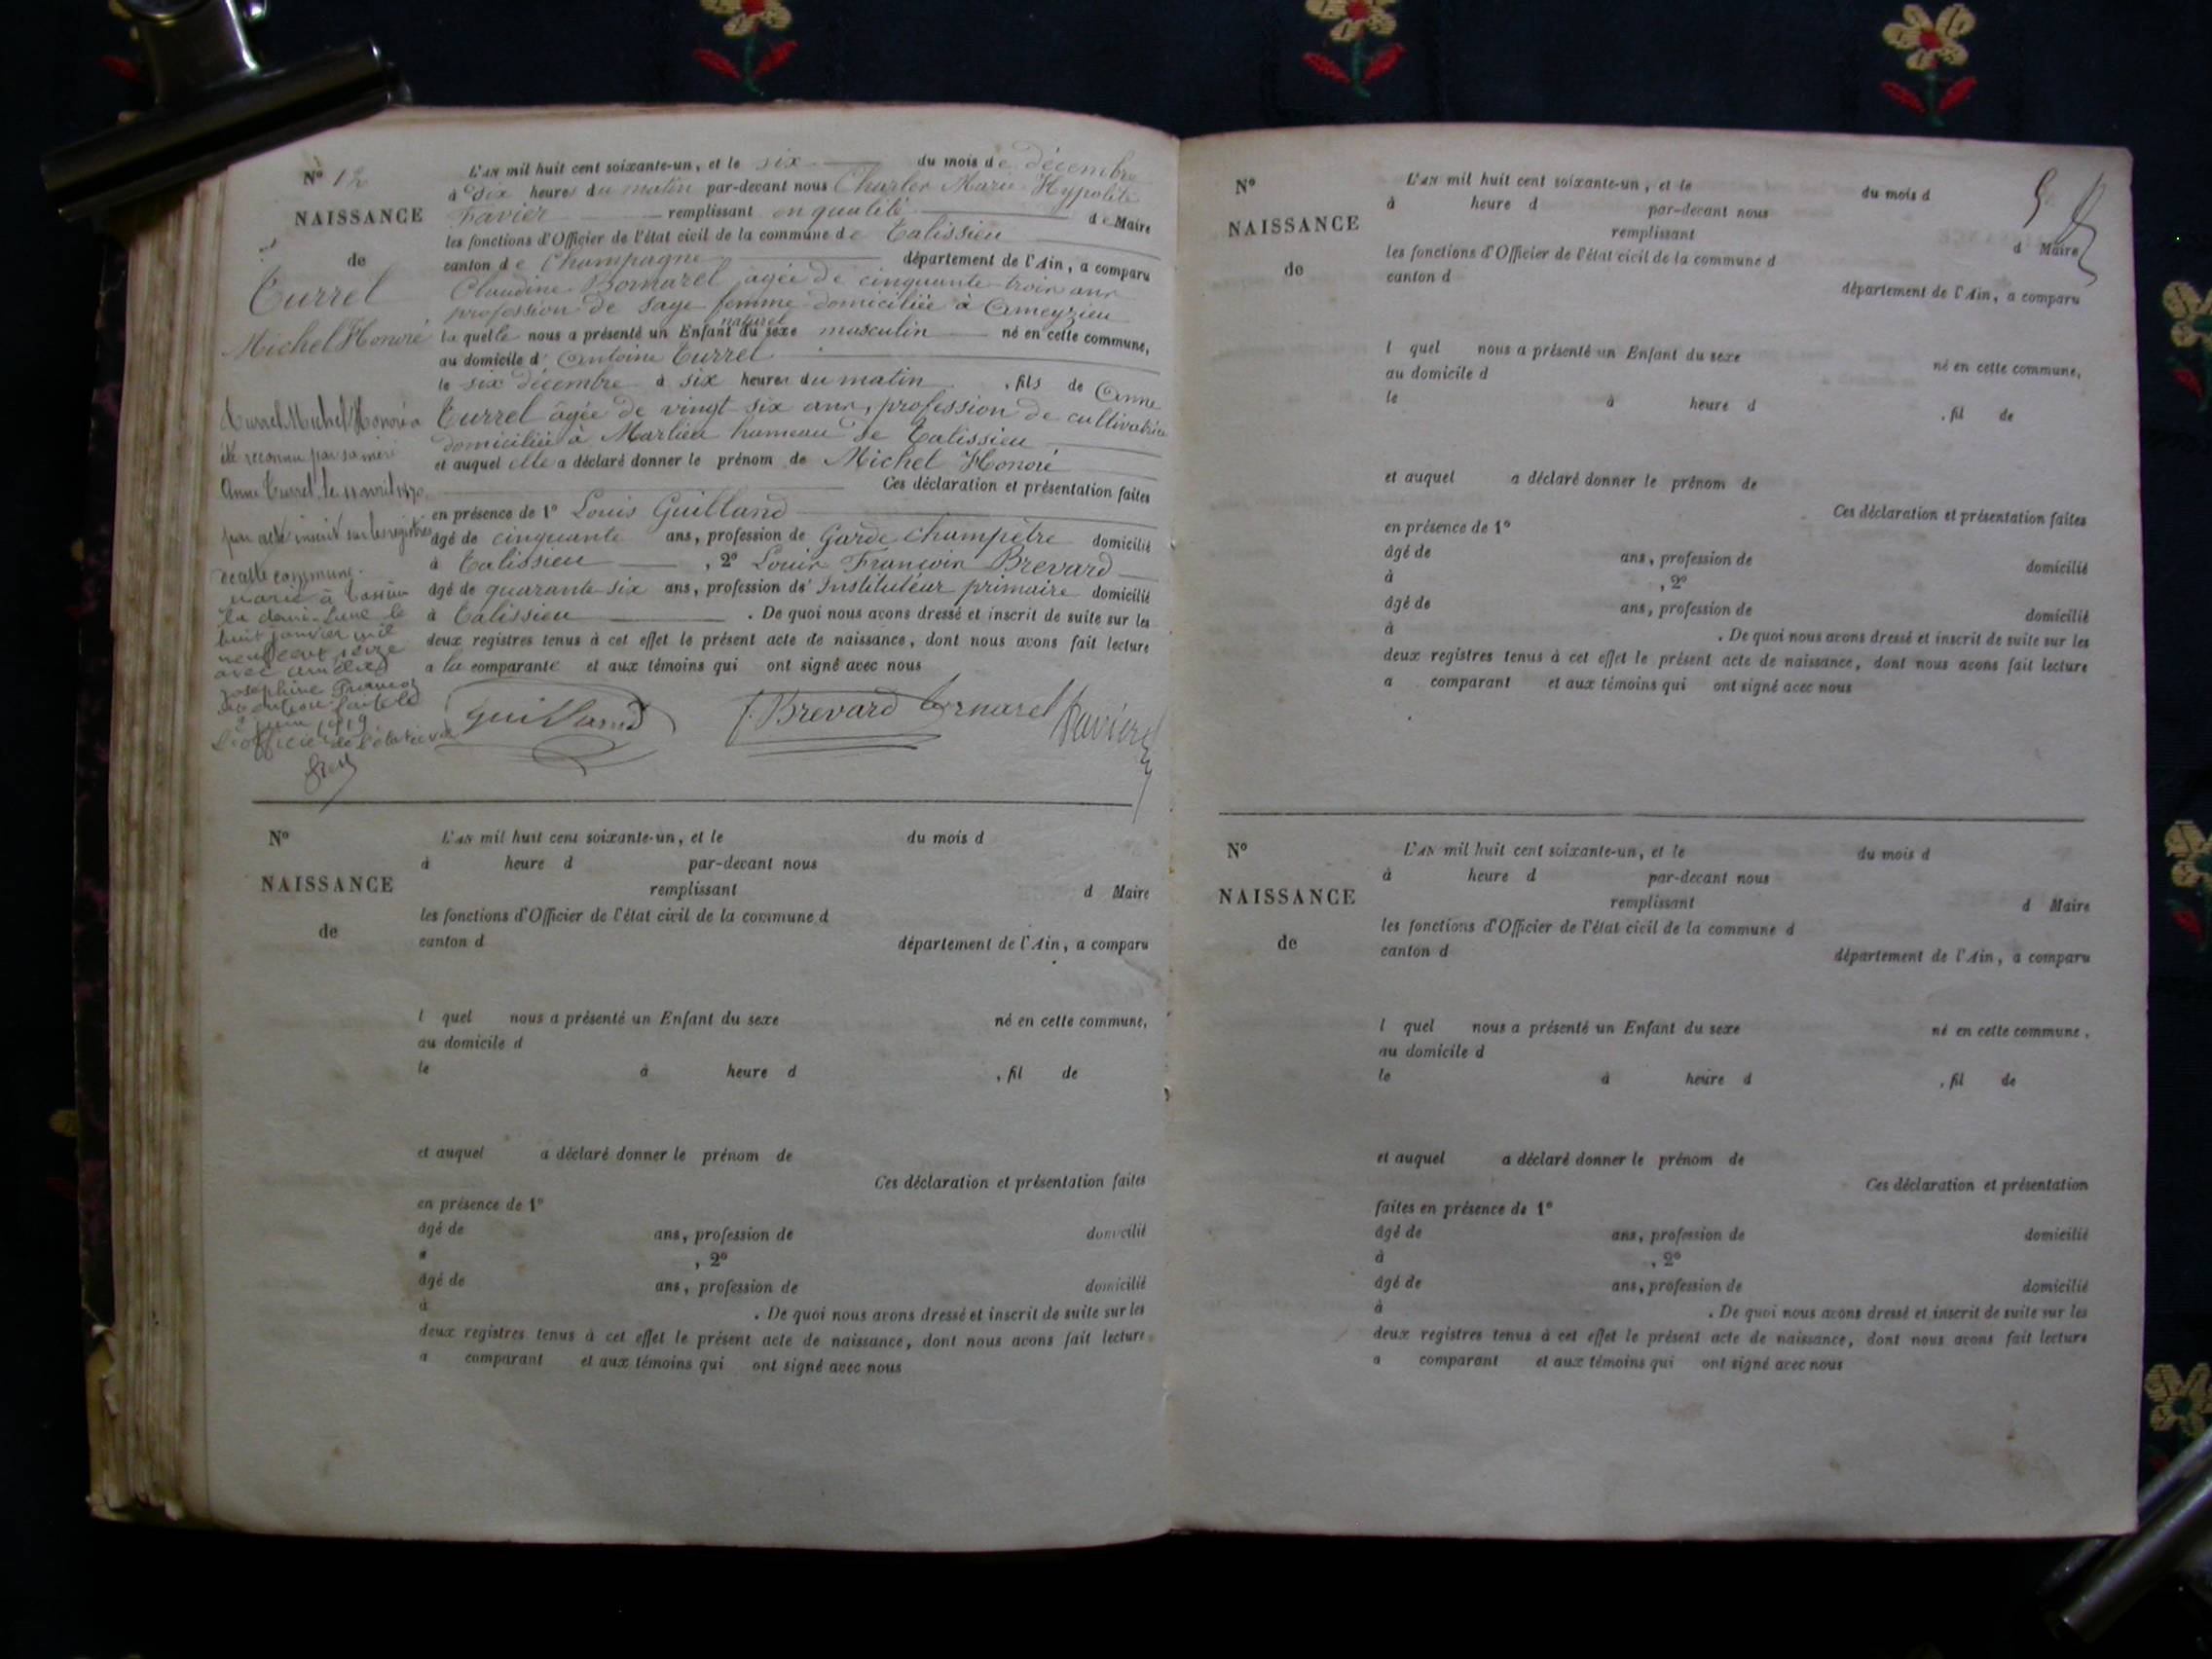 Nº 12
NAISSANCE
de
Turrel
Michel Honoré
L'AN mil huit cent soixante-un, et le six du mois de décembre
à dix heures du matin par-devant nous Charles Marie Hypolite
Favier remplissant en qualité de Maire
les fonctions d'Officier de l'état civil de la commune de Talissieu
canton de Champagne département de l'Ain, a comparu
Claudine Bornarel agée de cinquante trois ans
profession de sage femme domiciliée à Ameyzieu
la quelle nous a présenté un Enfant naturel du sexe masculin né en cette commune,
au domicile d'Antoine Turrel
le six décembre à six heures du matin, fils de Anne
Turrel âgée de vingt six ans, profession de cultivatrice
domiciliée à Marlieu hameau de Talissieu
et auquel elle a déclaré donner le prénom de Michel Honoré
Ces déclaration et présentation faites
en présence de 1º Louis Guilland
âgé de cinquante ans, profession de Garde champêtre domicilié
à Talissieu, 2º Louis François Brevard
âgé de quarante six ans, profession d'Instituteur primaire domicilié
à Talissieu. De quoi nous avons dressé et inscrit de suite sur les
deux registres tenus à cet effet le présent acte de naissance, dont nous avons fait lecture
a la comparante et aux témoins qui ont signé avec nous
Guilland Brevard Bornarel Favier
Turrel Michel Honoré a
été reconnu par sa mère
Anne Turrel, le 11 avril 1870,
par acte inscrit sur les registres
de cette commune.
Marié à Tassin
la demi-Lune le
huit janvier mil
neuf cent seize
avec
Joséphine
mention faite le
2 juin 1919
L'officier de l'état civil
Nº
NAISSANCE
de
L'AN mil huit cent soixante-un, et le du mois d
à heure d par-devant nous
remplissant d Maire
les fonctions d'Officier de l'état civil de la commune d
canton d département de l'Ain, a comparu
l quel nous a présenté un Enfant du sexe né en cette commune,
au domicile d
le à heure d , fil de
et auquel a déclaré donner le prénom de
Ces déclaration et présentation faites
en présence de 1º
âgé de ans, profession de domicilié
à , 2º
âgé de ans, profession de domicilié
à . De quoi nous avons dressé et inscrit de suite sur les
deux registres tenus à cet effet le présent acte de naissance, dont nous avons fait lecture
a comparant et aux témoins qui ont signé avec nous
Nº
NAISSANCE
de
L'AN mil huit cent soixante-un, et le du mois d
à heure d par-devant nous
remplissant d Maire
les fonctions d'Officier de l'état civil de la commune d
canton d département de l'Ain, a comparu
l quel nous a présenté un Enfant du sexe né en cette commune,
au domicile d
le à heure d , fil de
et auquel a déclaré donner le prénom de
Ces déclaration et présentation faites
en présence de 1º
âgé de ans, profession de domicilié
à , 2º
âgé de ans, profession de domicilié
à . De quoi nous avons dressé et inscrit de suite sur les
deux registres tenus à cet effet le présent acte de naissance, dont nous avons fait lecture
a comparant et aux témoins qui ont signé avec nous
Nº
NAISSANCE
de
L'AN mil huit cent soixante-un, et le du mois d
à heure d par-devant nous
remplissant d Maire
les fonctions d'Officier de l'état civil de la commune d
canton d département de l'Ain, a comparu
l quel nous a présenté un Enfant du sexe né en cette commune,
au domicile d
le à heure d , fil de
et auquel a déclaré donner le prénom de
Ces déclaration et présentation
faites en présence de 1º
âgé de ans, profession de domicilié
à , 2º
âgé de ans, profession de domicilié
à . De quoi nous avons dressé et inscrit de suite sur les
deux registres tenus à cet effet le présent acte de naissance, dont nous avons fait lecture
a comparant et aux témoins qui ont signé avec nous